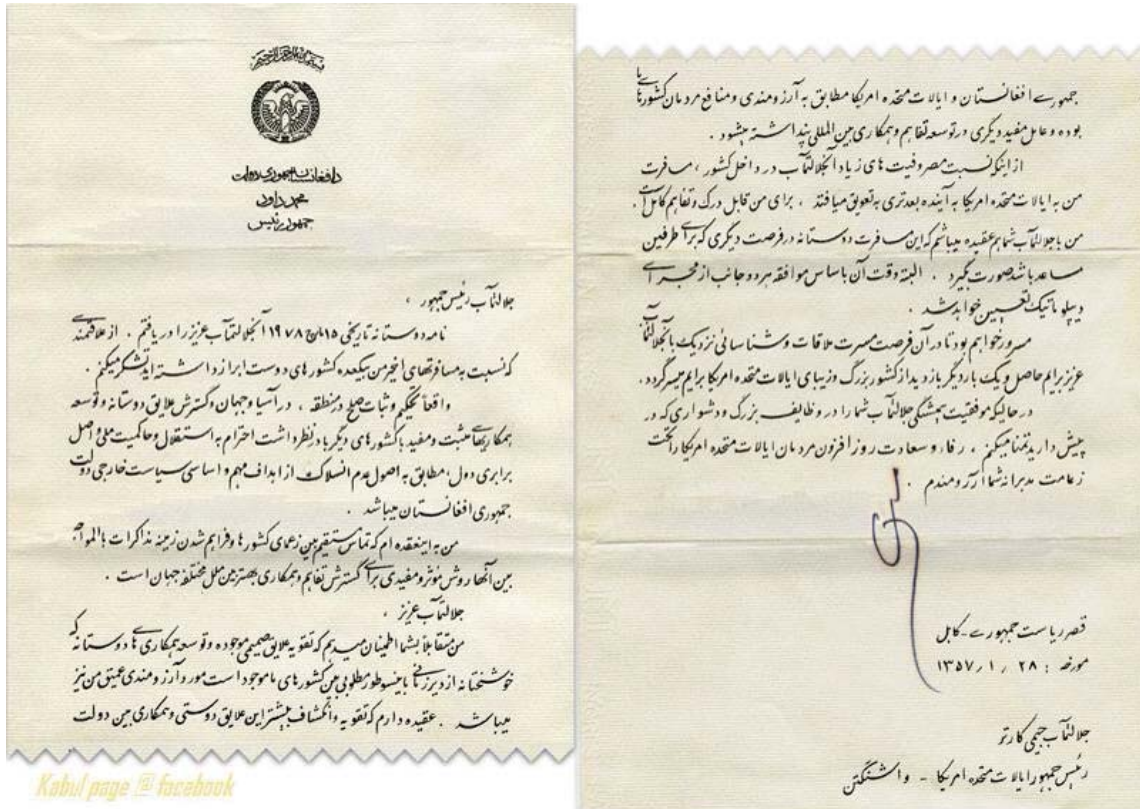 بسم الله الرحمن الرحیم
دافغانستان جمهوری دولت
محمد داود
جمهور رئیس
جلالتمآب رئیس جمهور ،
نامه دوستانه تاریخی ۱۵ مارچ ۱۹۷۸ آنجلالتمآب عزیز را دریافتم . از علاقمندی
که نسبت به مسافرتهای اخیر من بیکعده کشور های دوست ابراز داشته اید تشکر میکنم .
واقعاً تحکیم و ثبات صلح در منطقه ، در آسیا و جهان و گسترش علایق دوستانه و توسعه
همکاریهای مثبت و مفید با کشور های دیگر با در نظر داشت احترام به استقلال و حاکمیت ملی و اصل
برابری دول مطابق به اصول عدم انسلاک از اهداف مهم و اساسی سیاست خارجی دولت
جمهوری افغانستان میباشد .
من به اینعقیده ام که تماس مستقیم بین زعمای کشور ها و فراهم شدن زمینه مذاکرات بالمواجه
بین آنها روش موثر و مفیدی برای گسترش تفاهم و همکاری بهتر بین ملل مختلفه جهان است .
جلالتمآب عزیز ،
من متقابلاً بشما اطمینان میدهم که تقویه علایق صمیمی موجوده و توسعه همکاری های دوستانه که
خوشبختانه از دیر زمانی باینسو طور مطلوبی بین کشور های ما موجود است مورد آرزومندی عمیق من نیز
میباشد . عقیده دارم که تقویه و انکشاف بیشتر این علایق دوستی و همکاری بین دولت
Kabul page @ facebook
جمهوری افغانستان و ایالات متحده امریکا مطابق به آرزومندی و منافع مردمان کشورهای ما
بوده و عامل مفید دیگری در توسعه تفاهم و همکاری بین المللی پنداشته میشود .
از اینکه نسبت مصروفیت های زیاد آنجلالتمآب در داخل کشور ، مسافرت
من به ایالات متحده امریکا به آینده بعدتری به تعویق میافتد ، برای من قابل درک و تفاهم کامل است .
من با جلالتمآب شما هم عقیده میباشم که این مسافرت دوستانه در فرصت دیگری که برای طرفین
مساعد باشد صورت بگیرد . البته وقت آن باساس موافقه هر دو جانب از مجرای
دیپلوماتیک تعیین خواهد شد .
مسرور خواهم بود تا در آن فرصت مسرت ملاقات و شناسائی نزدیک با آنجلالتمآب
عزیز برایم حاصل و یک بار دیگر بازدید از کشور بزرگ و زیبای ایالات متحده امریکا برایم میسر گردد .
در حالیکه موفقیت همیشگی جلالتمآب شما را در وظایف بزرگ و دشواری که در
پیش دارید تمنا میکنم ، رفاه و سعادت روز افزون مردمان ایالات متحده امریکا را تحت
زعامت مدبرانه شما آرزومندم .
قصر ریاست جمهوری - کابل
مورخه : ۲۸ ر ۱ ر ۱۳۵۷
جلالتمآب جیمی کارتر
رئیس جمهور ایالات متحده امریکا - واشنگتن